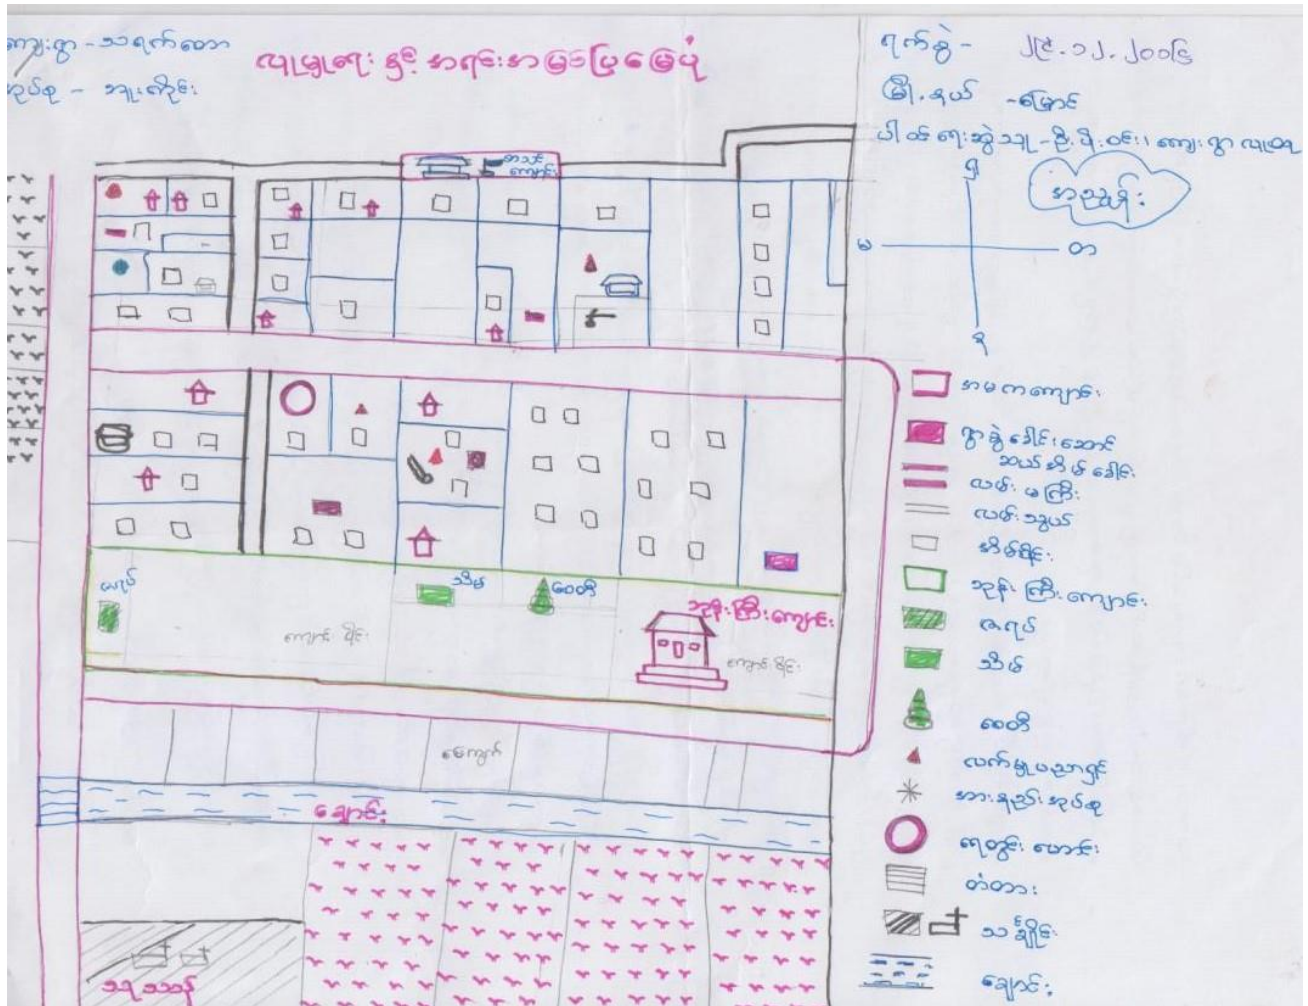 ကျေးရွာ - သရက်တော
အုပ်စု - ဘူးတိုင်း
လူမှုရေး နှင့် အရင်းအမြစ်ပြမြေပုံ
ရက်စွဲ - ၂၄.၁၂.၂၀၁၆
မြို့နယ် - မြောင်
အညွှန်း
မ
တ
အသင်း
ကျောင်း
ဇရပ်
သိမ်
စေတီ
ဘုန်းကြီးကျောင်း
ကျောင်းဝိုင်း
ကျောင်းဝိုင်း
မြေကွက်
ချောင်း
သုဿာန်
အမကကျောင်း
ရွာခွဲခေါင်းဆောင်
ဆယ်အိမ်ခေါင်း
လမ်းမကြီး
လမ်းသွယ်
အိမ်ဝိုင်း
ဘုန်းကြီးကျောင်း
ဇရပ်
သိမ်
စေတီ
လက်မှုပညာရှင်
အားနည်းအုပ်စု
ရေတွင်းဟောင်း
တံတား
သင်္ချိုင်း
ချောင်း